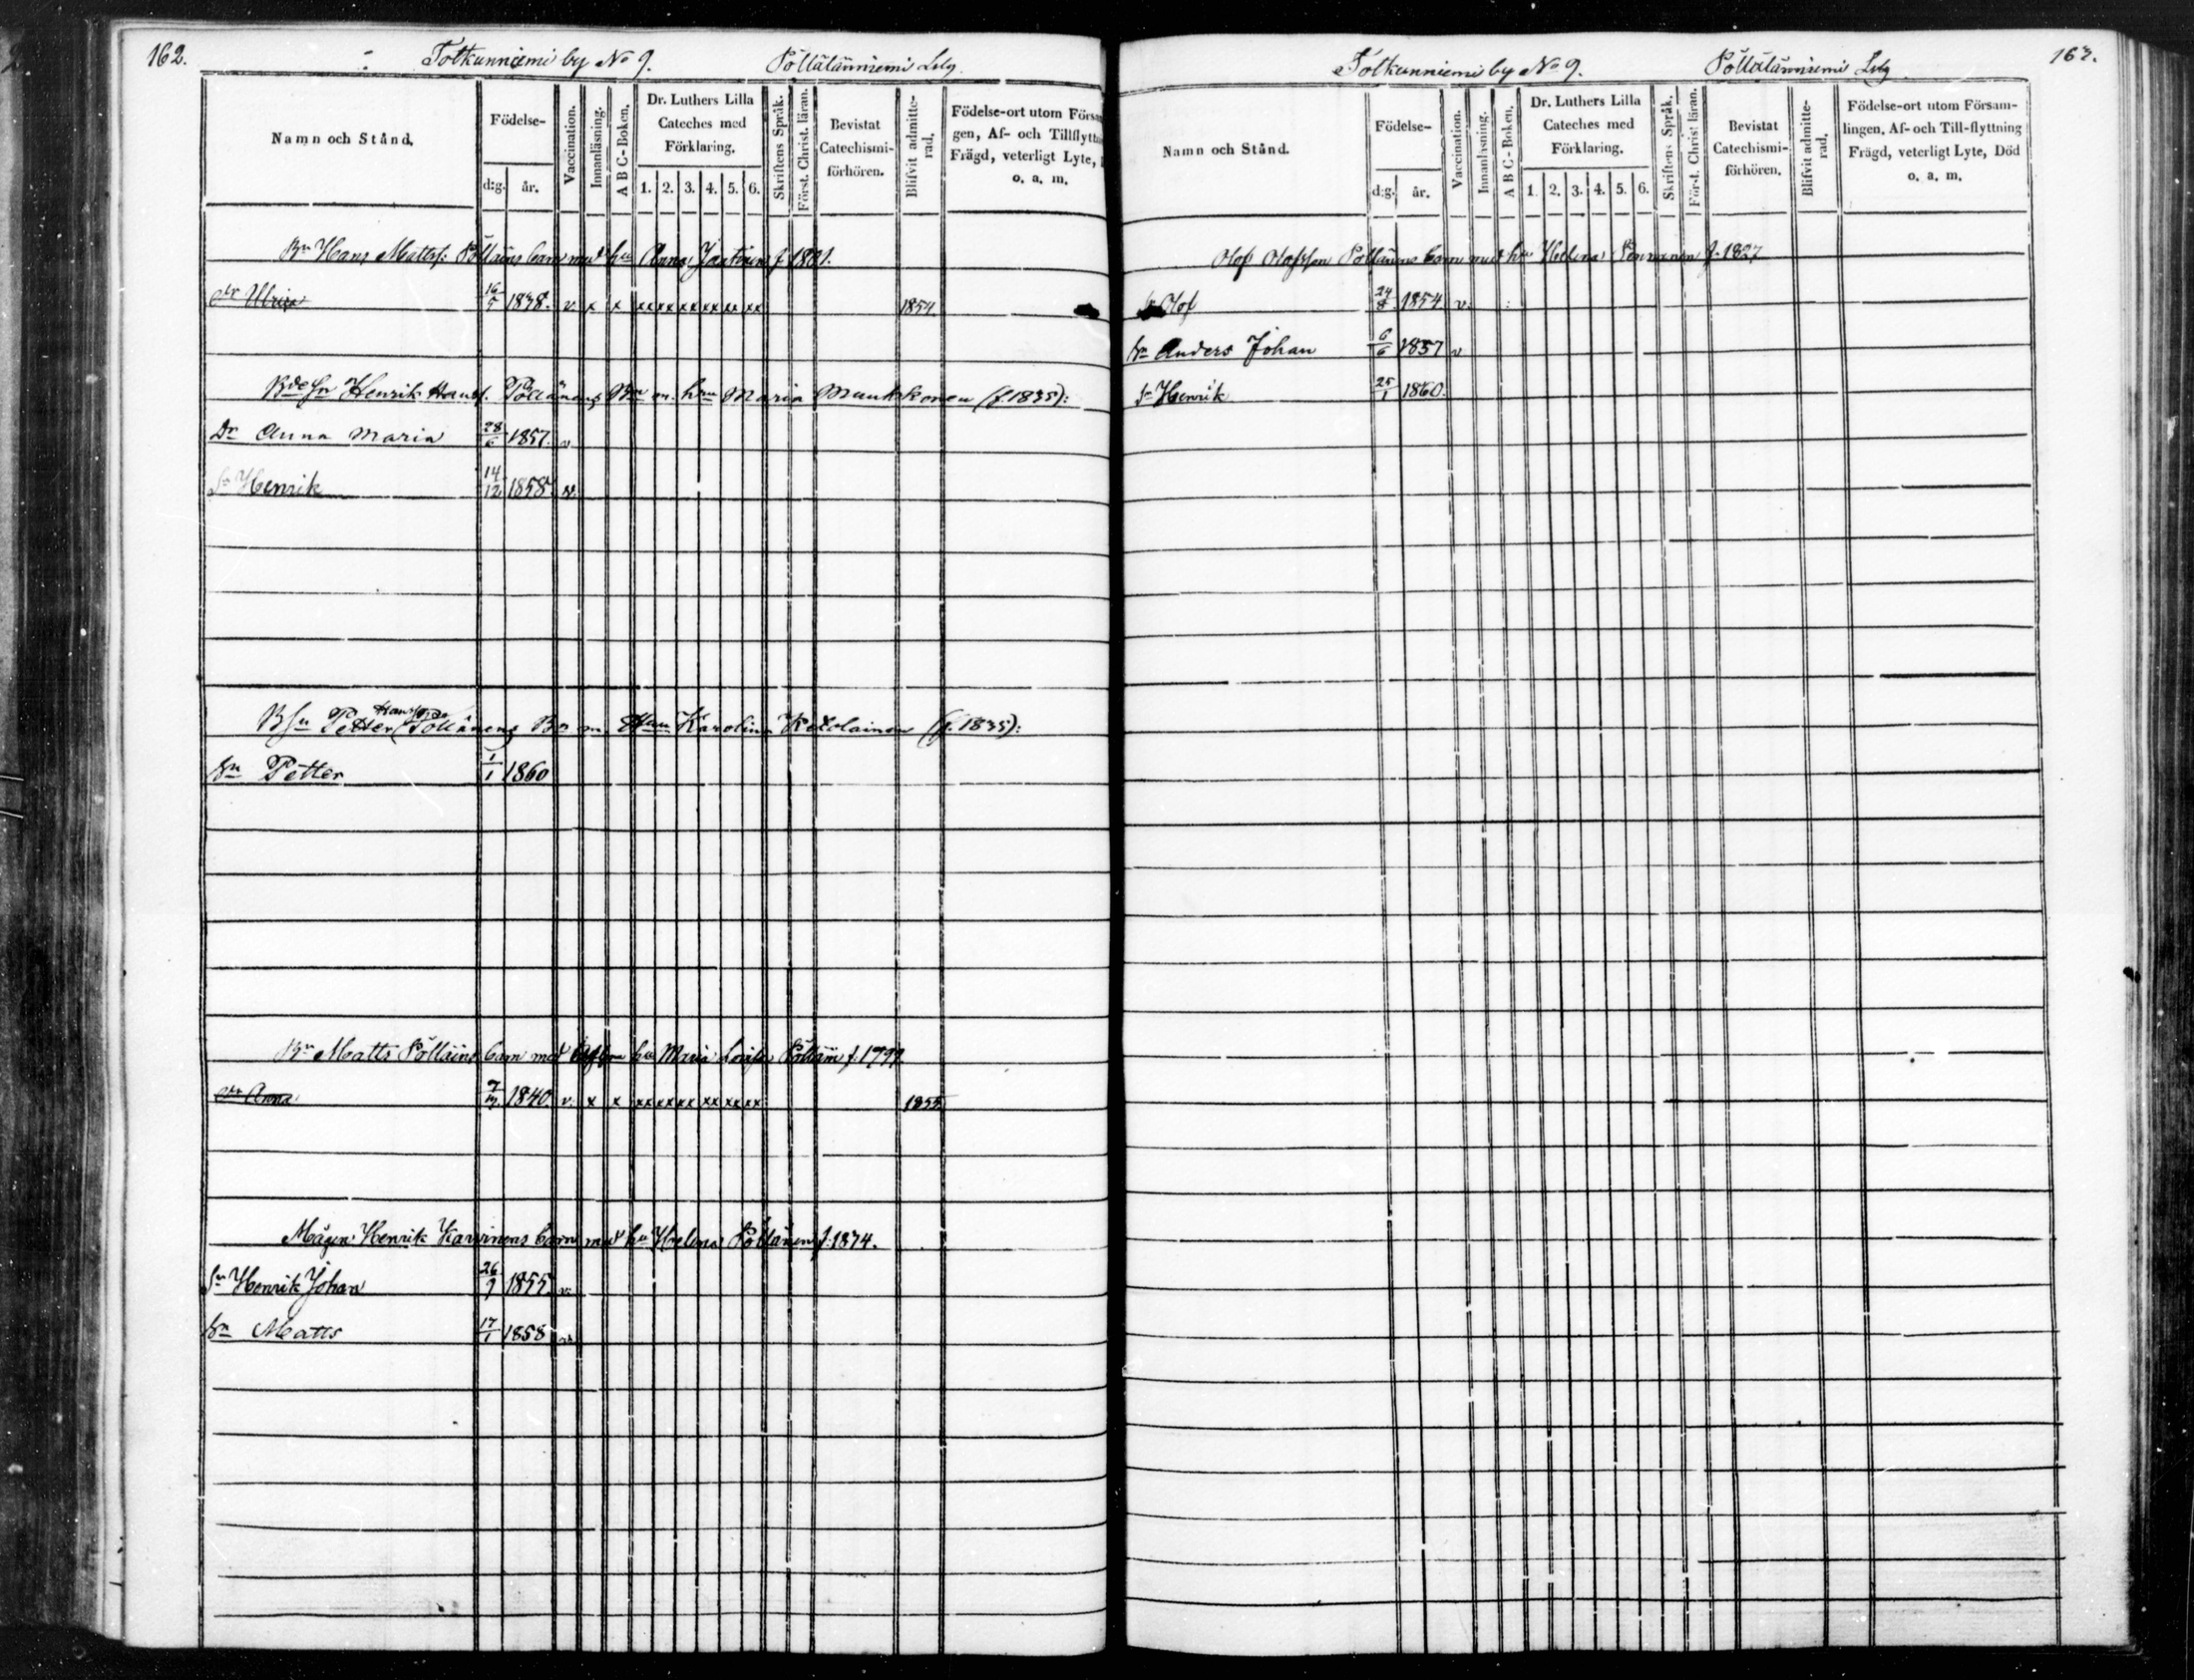 162. Totkunniemi by No 9. Pöllälänniemi Lilg
Namn och Stånd.
Födelse-
d:g. år.
Vaccination.
Innanläsning.
A B C-Boken.
Dr. Luthers Lilla Cateches med Förklaring.
1. 2. 3. 4. 5. 6.
Skriftens Språk.
Först. Christ. läran.
Bevistat Catechismi-förhören.
Blifvit admitte-rad.
Födelse-ort utom Försam
gen, Af- och Tillflyttn
Frägd, veterligt Lyte,
o. a. m.
Bn Hans Mattss: Pölläins barn med hu Anna Jantinen f 1801.
dtr Ulrica 16/5 1838. v. x x xx xx xx xx xx xx 1854.
Bde Sn Henrik Hanss. Pöllänens Bn m. hru Maria Munkkonen (f.1835):
Dr Anna Maria 28/6 1857. v
Sn Henrik 14/12 1858. v.
BSn Petter Hansson Pöllänens Bn m. Hru Karolina Ketolainen (f.1835):
Sn Petter 1/1 1860
Bn Matts Pölläins barn med hu Maria Lovisa Pölläin f. 1799
dtr Anna 1840 v. x x xx xx xx xx xx xx 1855
Mågen Henrik Karvinens barn med hu Helena Pöllänen f. 1834.
Sn Henrik Johan 26/9 1855. v.
Sn Matts 17/1 1858 v.
Totkunniemi by No 9. Pöllälänniemi Lilg 163.
Namn och Stånd.
Födelse-
d:g. år.
Vaccination.
Innanläsning.
A B C-Boken.
Dr. Luthers Lilla Cateches med Förklaring.
1. 2. 3. 4. 5. 6.
Skriftens Språk.
Först. Christ läran.
Bevistat Catechismi-förhören.
Blifvit admitte-rad.
Födelse-ort utom Försam-
lingen, Af- och Till-flyttning
Frägd, veterligt Lyte, Död
o. a. m.
Olof Olofsson Pöllänens barn med hu Helena Pennanen f. 1827
Sn Olof 24/8 1854 v.
Sn Anders Johan 6/6 1857 v
Sn Henrik 25/1 1860.